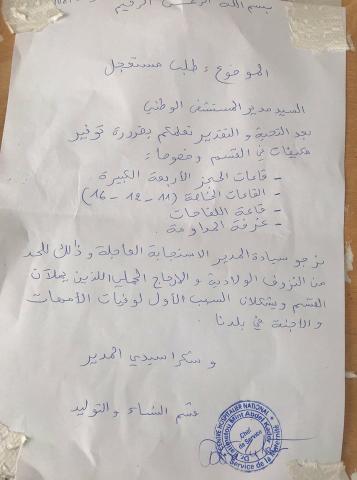 بسم الله الرحمن الرحيم
الموضوع: طلب مستعجل
السيد مدير المستشفى الوطني
بعد التحية و التقدير نعلمكم بضرورة توفير
مكيفات في القسم و خصوصا:
- قاعات الحجز الأربعة الكبيرة
- القاعات الخاصة (11 - 12 - 16)
- قاعة اللقاحات
- غرفة المداومة.
نرجو سيادة المدير الاستجابة العاجلة و ذلك للحد
من النزوف الولادية و الارتعاج الحملي اللذين يملآن
القسم ويشكلان السبب الأول لوفيات الأمهات
و الأجنة في بلدنا.
و شكرا سيدي المدير
قسم النساء والتوليد
CENTRE HOSPITALIER NATIONAL
Chef de Service
Service de la